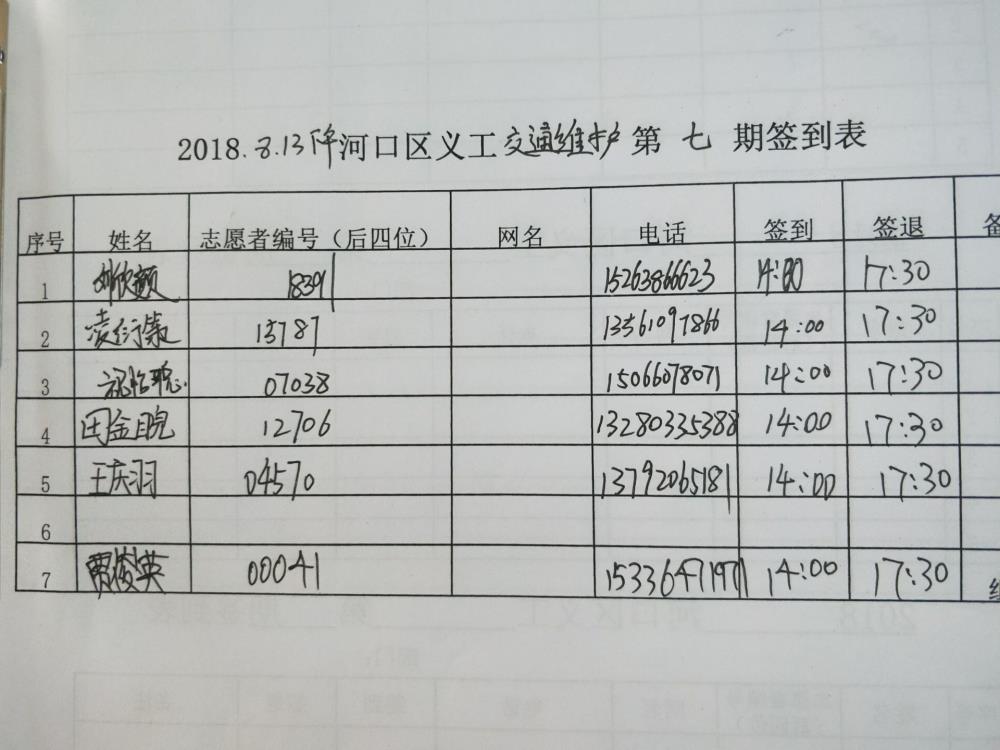 2018.8.13下午河口区义工交通维护第七期签到表
序号 姓名 志愿者编号（后四位） 网名 电话 签到 签退 备
1 18391 15263866623 14:00 17:30
2 凌衍策 15787 13561097866 14:00 17:30
3 07038 15066078071 14:00 17:30
4 田金皖 12706 13280335388 14:00 17:30
5 王庆羽 04570 13792065181 14:00 17:30
6
7 贾俊英 00041 15336471971 14:00 17:30